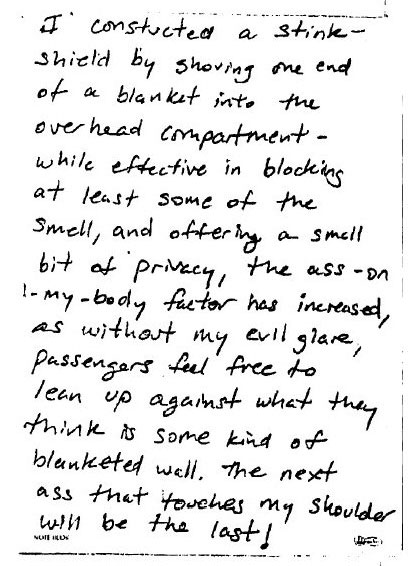 I constucted a stink-
shield by shoving one end
of a blanket into the
overhead compartment -
while effective in blocking
at least some of the
smell, and offering a small
bit of privacy, the ass-on
-my-body factor has increased,
as without my evil glare,
passengers feel free to
lean up against what they
think is some kind of
blanketed wall. The next
ass that touches my shoulder
will be the last!